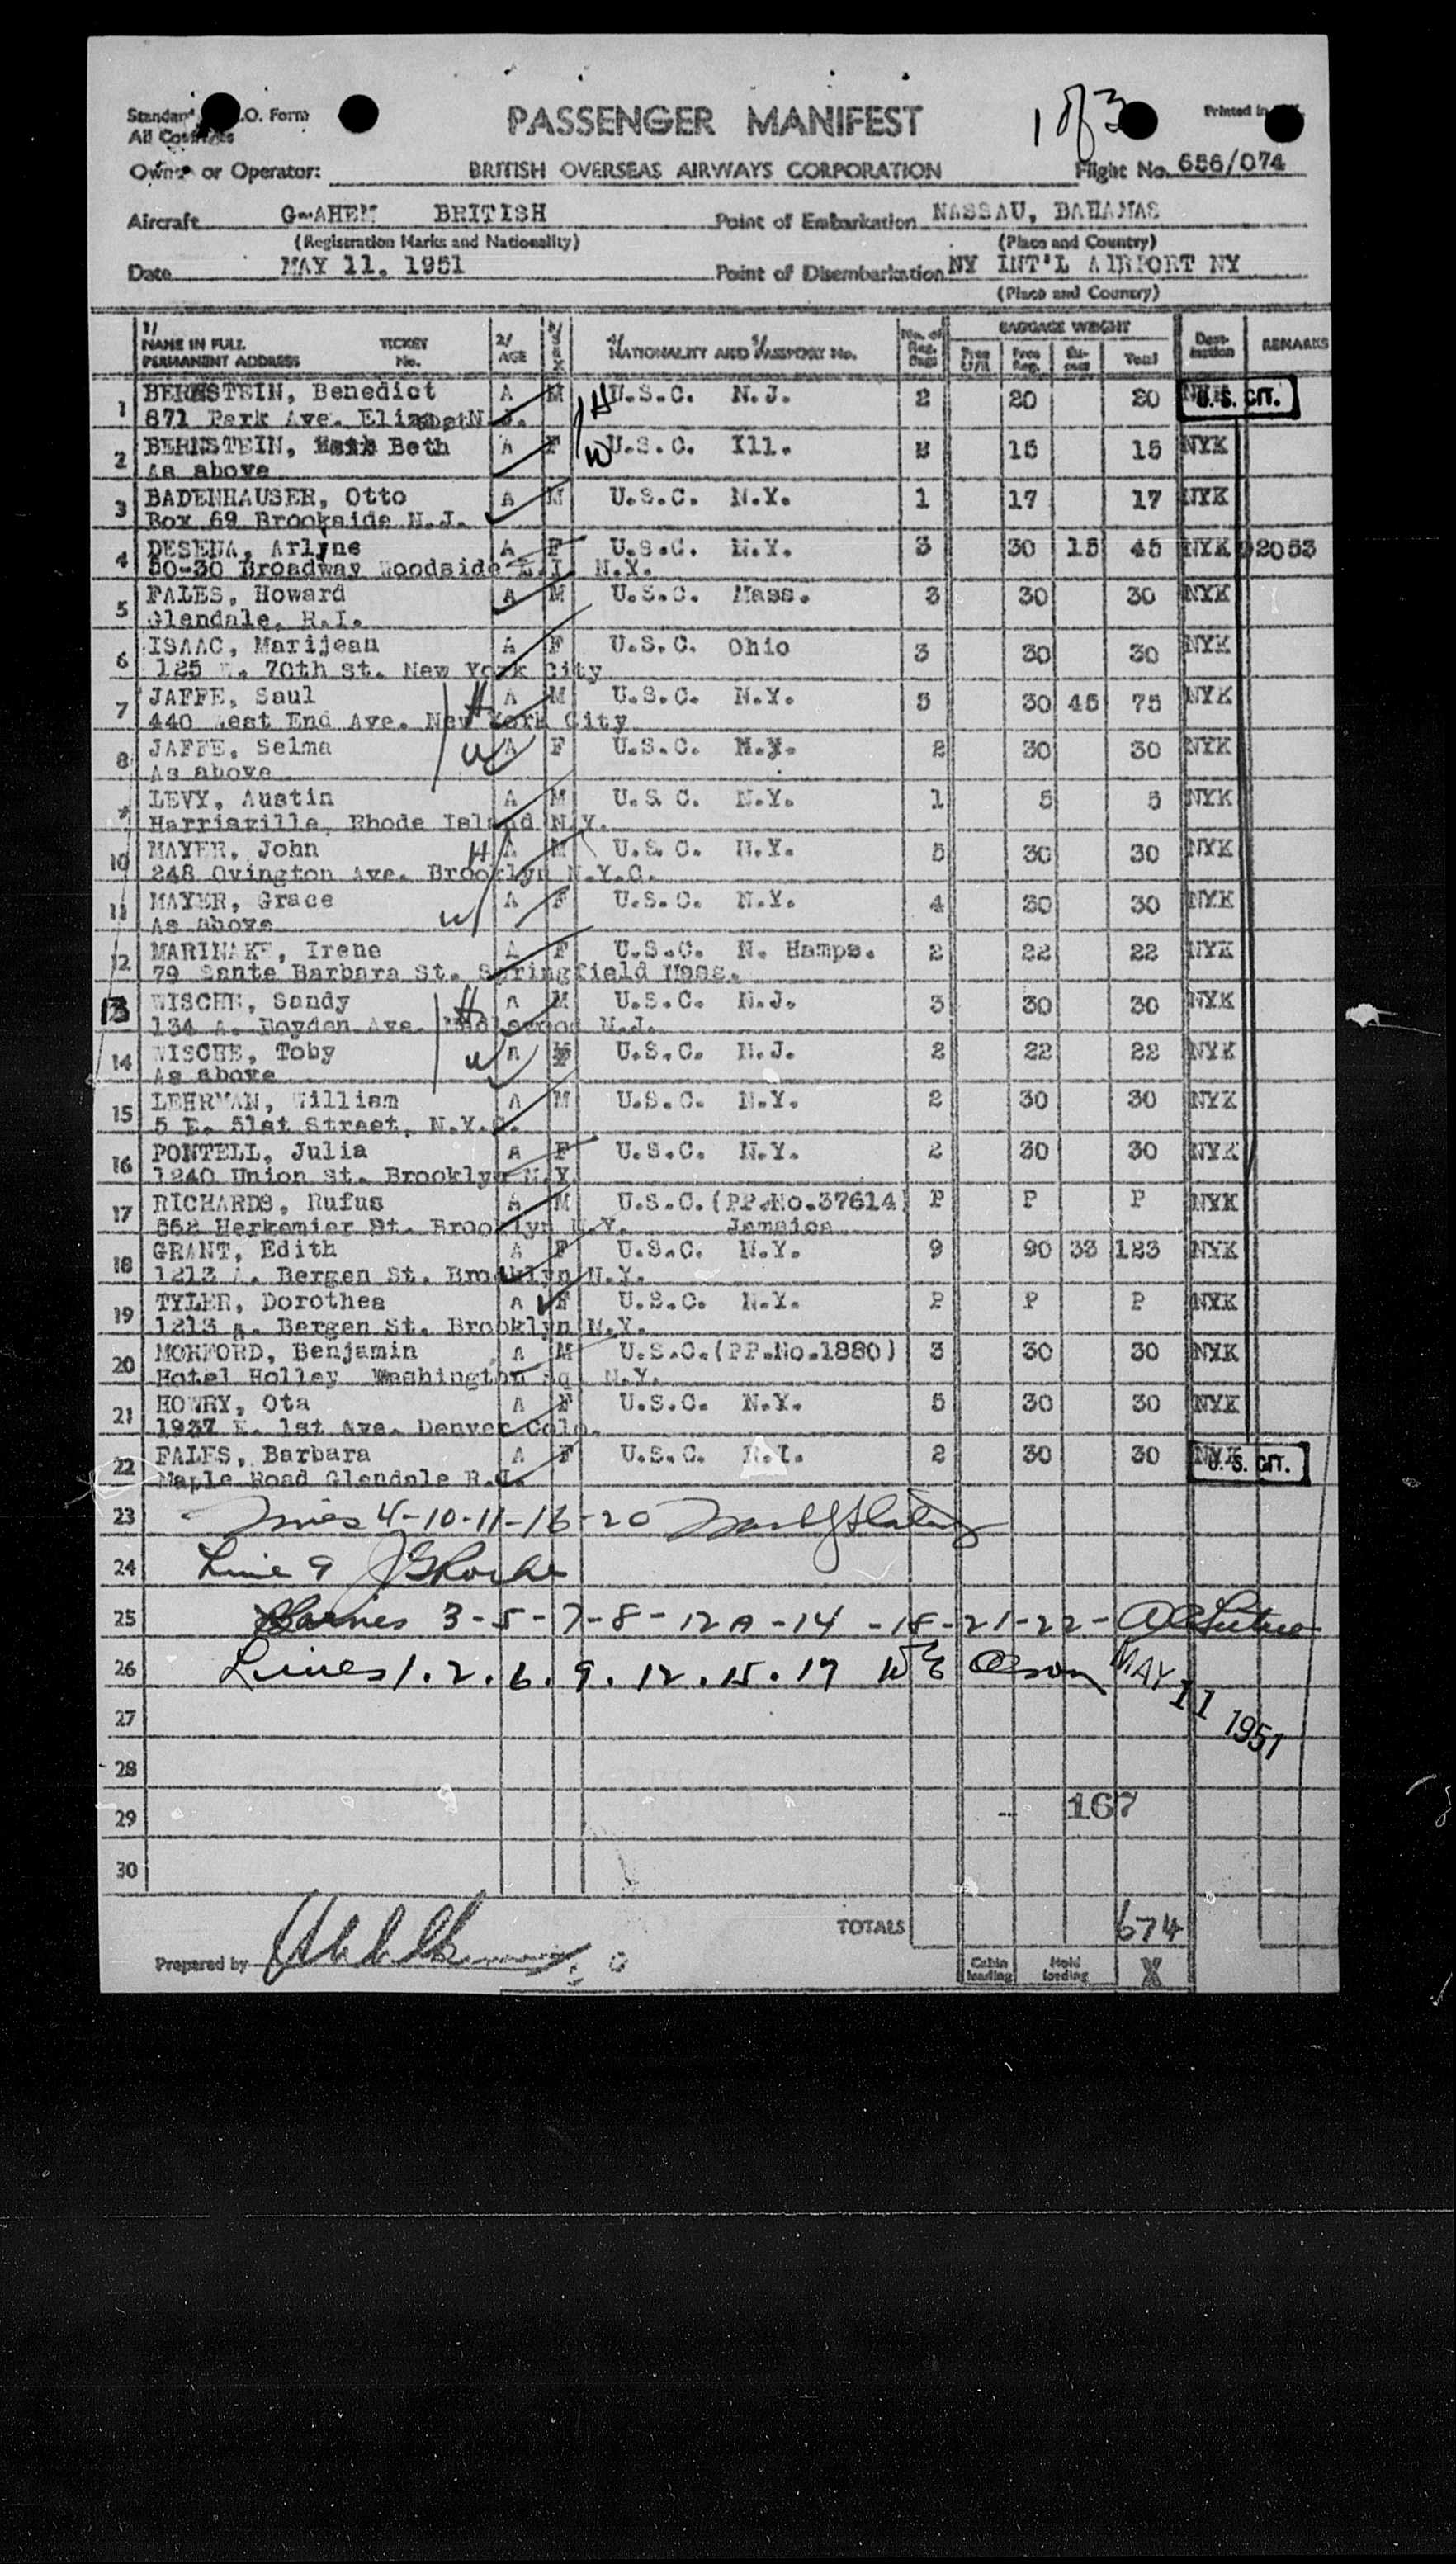 PASSENGER MANIFEST
1 of 3
Form
All
Owner or Operator: BRITISH OVERSEAS AIRWAYS CORPORATION Flight No. 656/074
Aircraft G-AHEM BRITISH Point of Embarkation NASSAU, BAHAMAS
(Registration Marks and Nationality) (Place and Country)
Date MAY 11, 1951 Point of Disembarkation NY INT'L AIRPORT NY
(Place and Country)
1/ NAME IN FULL PERMANENT ADDRESS TICKET No. 2/ AGE SEX 4/ NATIONALITY AND 5/ PASSPORT No. No. of Reg. Bags BAGGAGE WEIGHT Free Reg. Total Destination REMARKS
1 BERNSTEIN, Benedict A M H U.S.C. N.J. 2 20 20 NYK U.S. CIT.
871 Park Ave. N.J.
2 BERNSTEIN, Beth A F W U.S.C. Ill. 15 15 NYK
As above
3 BADENHAUSER, Otto A M U.S.C. N.Y. 1 17 17 NYK
Box 69 Brookside N.J.
4 DESENA, Arlyne A F U.S.C. N.Y. 3 30 15 45 NYK 2053
50-30 Broadway Woodside L.I. N.Y.
5 FALES, Howard A M U.S.C. Mass. 3 30 30 NYK
Glendale, R.I.
6 ISAAC, Marijean A F U.S.C. Ohio 3 30 30 NYK
125 E. 70th St. New York City
7 JAFFE, Saul H A M U.S.C. N.Y. 5 30 45 75 NYK
440 West End Ave. New York City
8 JAFFE, Selma W A F U.S.C. N.Y. 2 30 30 NYK
As above
LEVY, Austin A M U.S.C. N.Y. 1 5 5 NYK
Harrisville, Rhode Island N.Y.
10 MAYER, John H A M U.S.C. N.Y. 5 30 30 NYK
248 Ovington Ave. Brooklyn N.Y.C.
11 MAYER, Grace W A F U.S.C. N.Y. 4 30 30 NYK
As above
12 MARINAKE, Irene A F U.S.C. N. Hamps. 2 22 22 NYK
79 Sante Barbara St. Springfield Mass.
13 WISCHE, Sandy H A M U.S.C. N.J. 3 30 30 NYK
134 A. Boyden Ave. N.J.
14 WISCHE, Toby W A U.S.C. N.J. 2 22 22 NYK
As above
15 LEHRMAN, William A M U.S.C. N.Y. 2 30 30 NYK
5 E. 51st Street, N.Y.C.
16 PONTELL, Julia A F U.S.C. N.Y. 2 30 30 NYK
1240 Union St. Brooklyn N.Y.
17 RICHARDS, Rufus A M U.S.C. (PP.No.37614) P P P NYK
552 Herkemier St. Brooklyn N.Y. Jamaica
18 GRANT, Edith A F U.S.C. N.Y. 9 90 33 123 NYK
1213 A. Bergen St. Brooklyn N.Y.
19 TYLER, Dorothea A F U.S.C. N.Y. P P P NYK
1213 A. Bergen St. Brooklyn N.Y.
20 MORFORD, Benjamin A M U.S.C. (PP.No.1880) 3 30 30 NYK
Hotel Holley Washington Sq N.Y.
21 HOWRY, Ota A F U.S.C. N.Y. 5 30 30 NYK
1937 E. 1st Ave. Denver Colo.
22 FALES, Barbara A F U.S.C. R.I. 2 30 30 NYK U.S. CIT.
Maple Road Glendale R.I.
23 Lines 4-10-11-16-20
24 Line 9
25 Lines 3-5-7-8-12A-14-18-21-22-
26 Lines 1. 2. 6. 9. 12. 15. 17 W E Olson MAY 11 1951
27
28
29 167
30
TOTALS 674
Prepared by Cabin loading Hold loading X